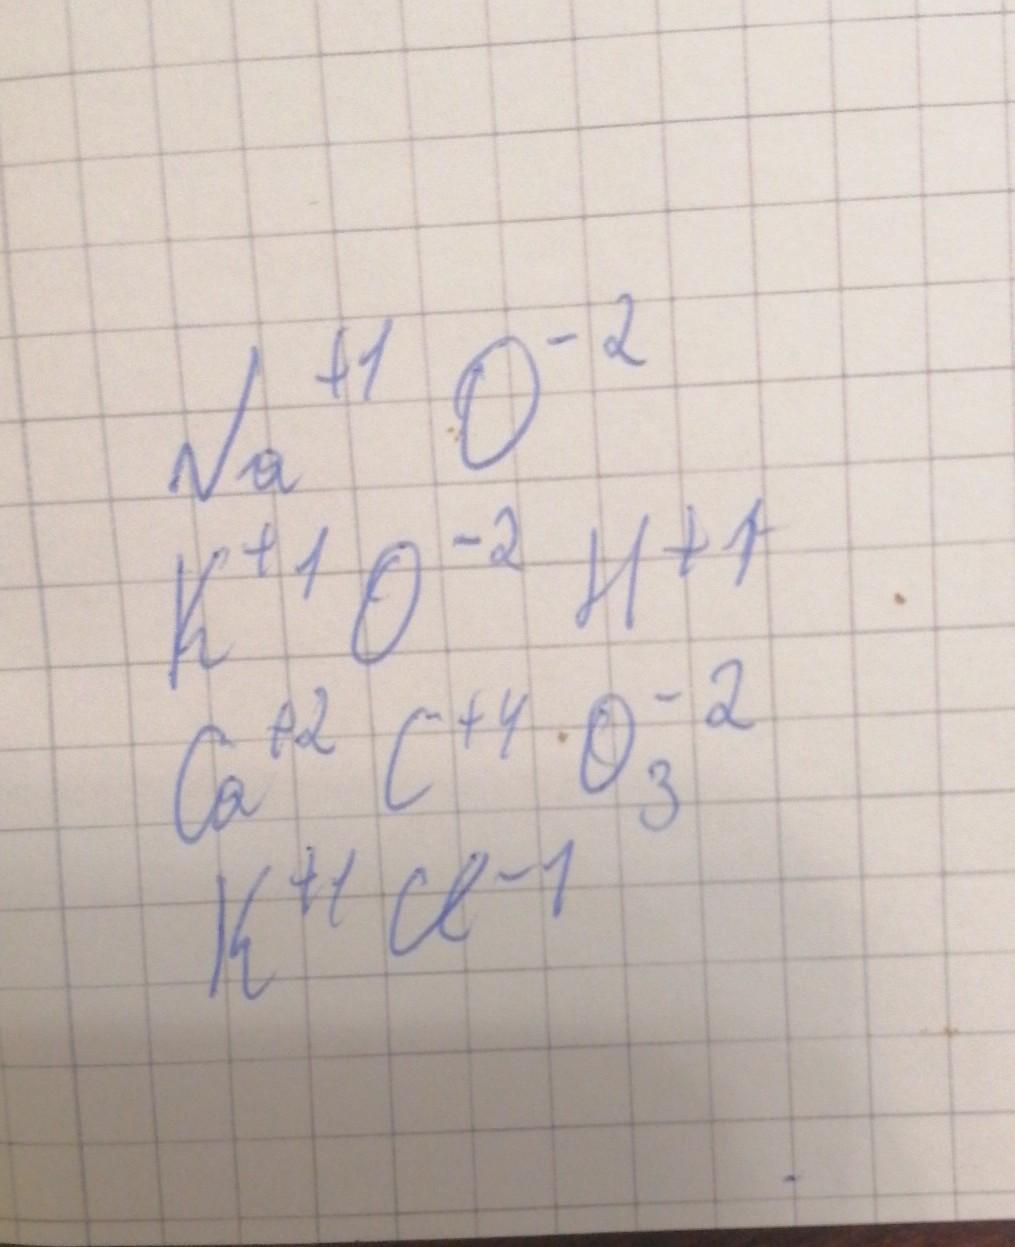 Na⁺¹ O⁻²
K⁺¹ O⁻² H⁺¹
Ca⁺² C⁺⁴ O₃⁻²
K⁺¹ Cl⁻¹